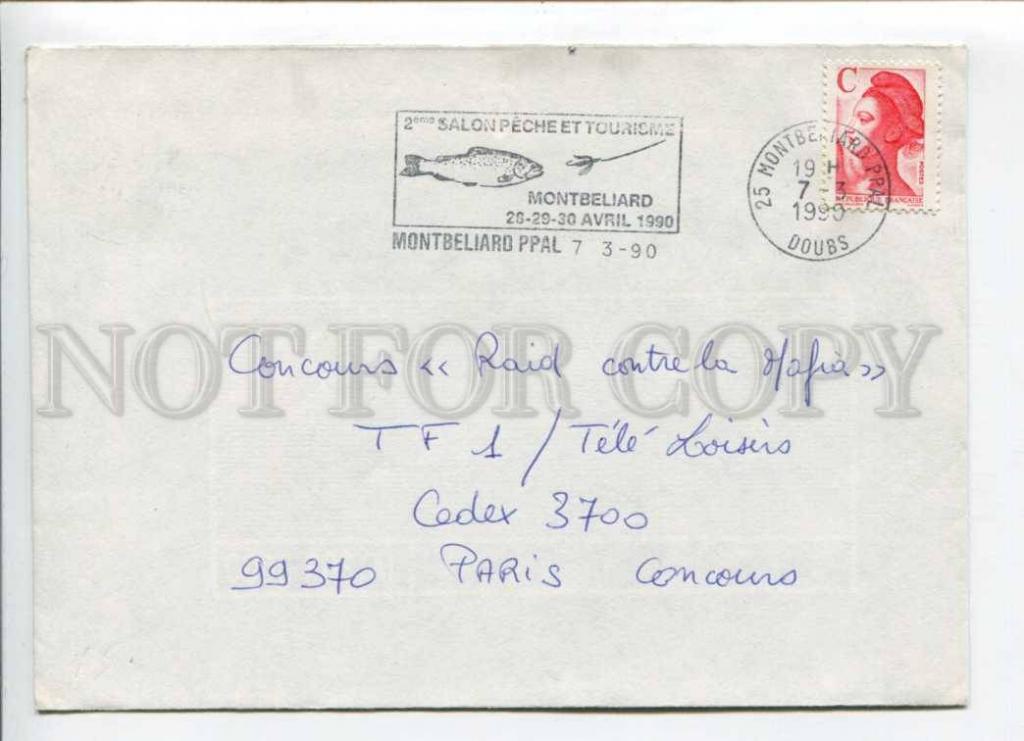 C
POSTES
REPUBLIQUE FRANCAISE
2eme SALON PÊCHE ET TOURISME
MONTBELIARD
28-29-30 AVRIL 1990
MONTBELIARD PPAL 7 3-90
25 MONTBELIARD PPAL
19 H
7 - 3
1990
DOUBS
NOT FOR COPY
Concours << Raid contre la Mafia >>
TF 1 / Télé Loisirs
Cedex 3700
99370 PARIS Concours